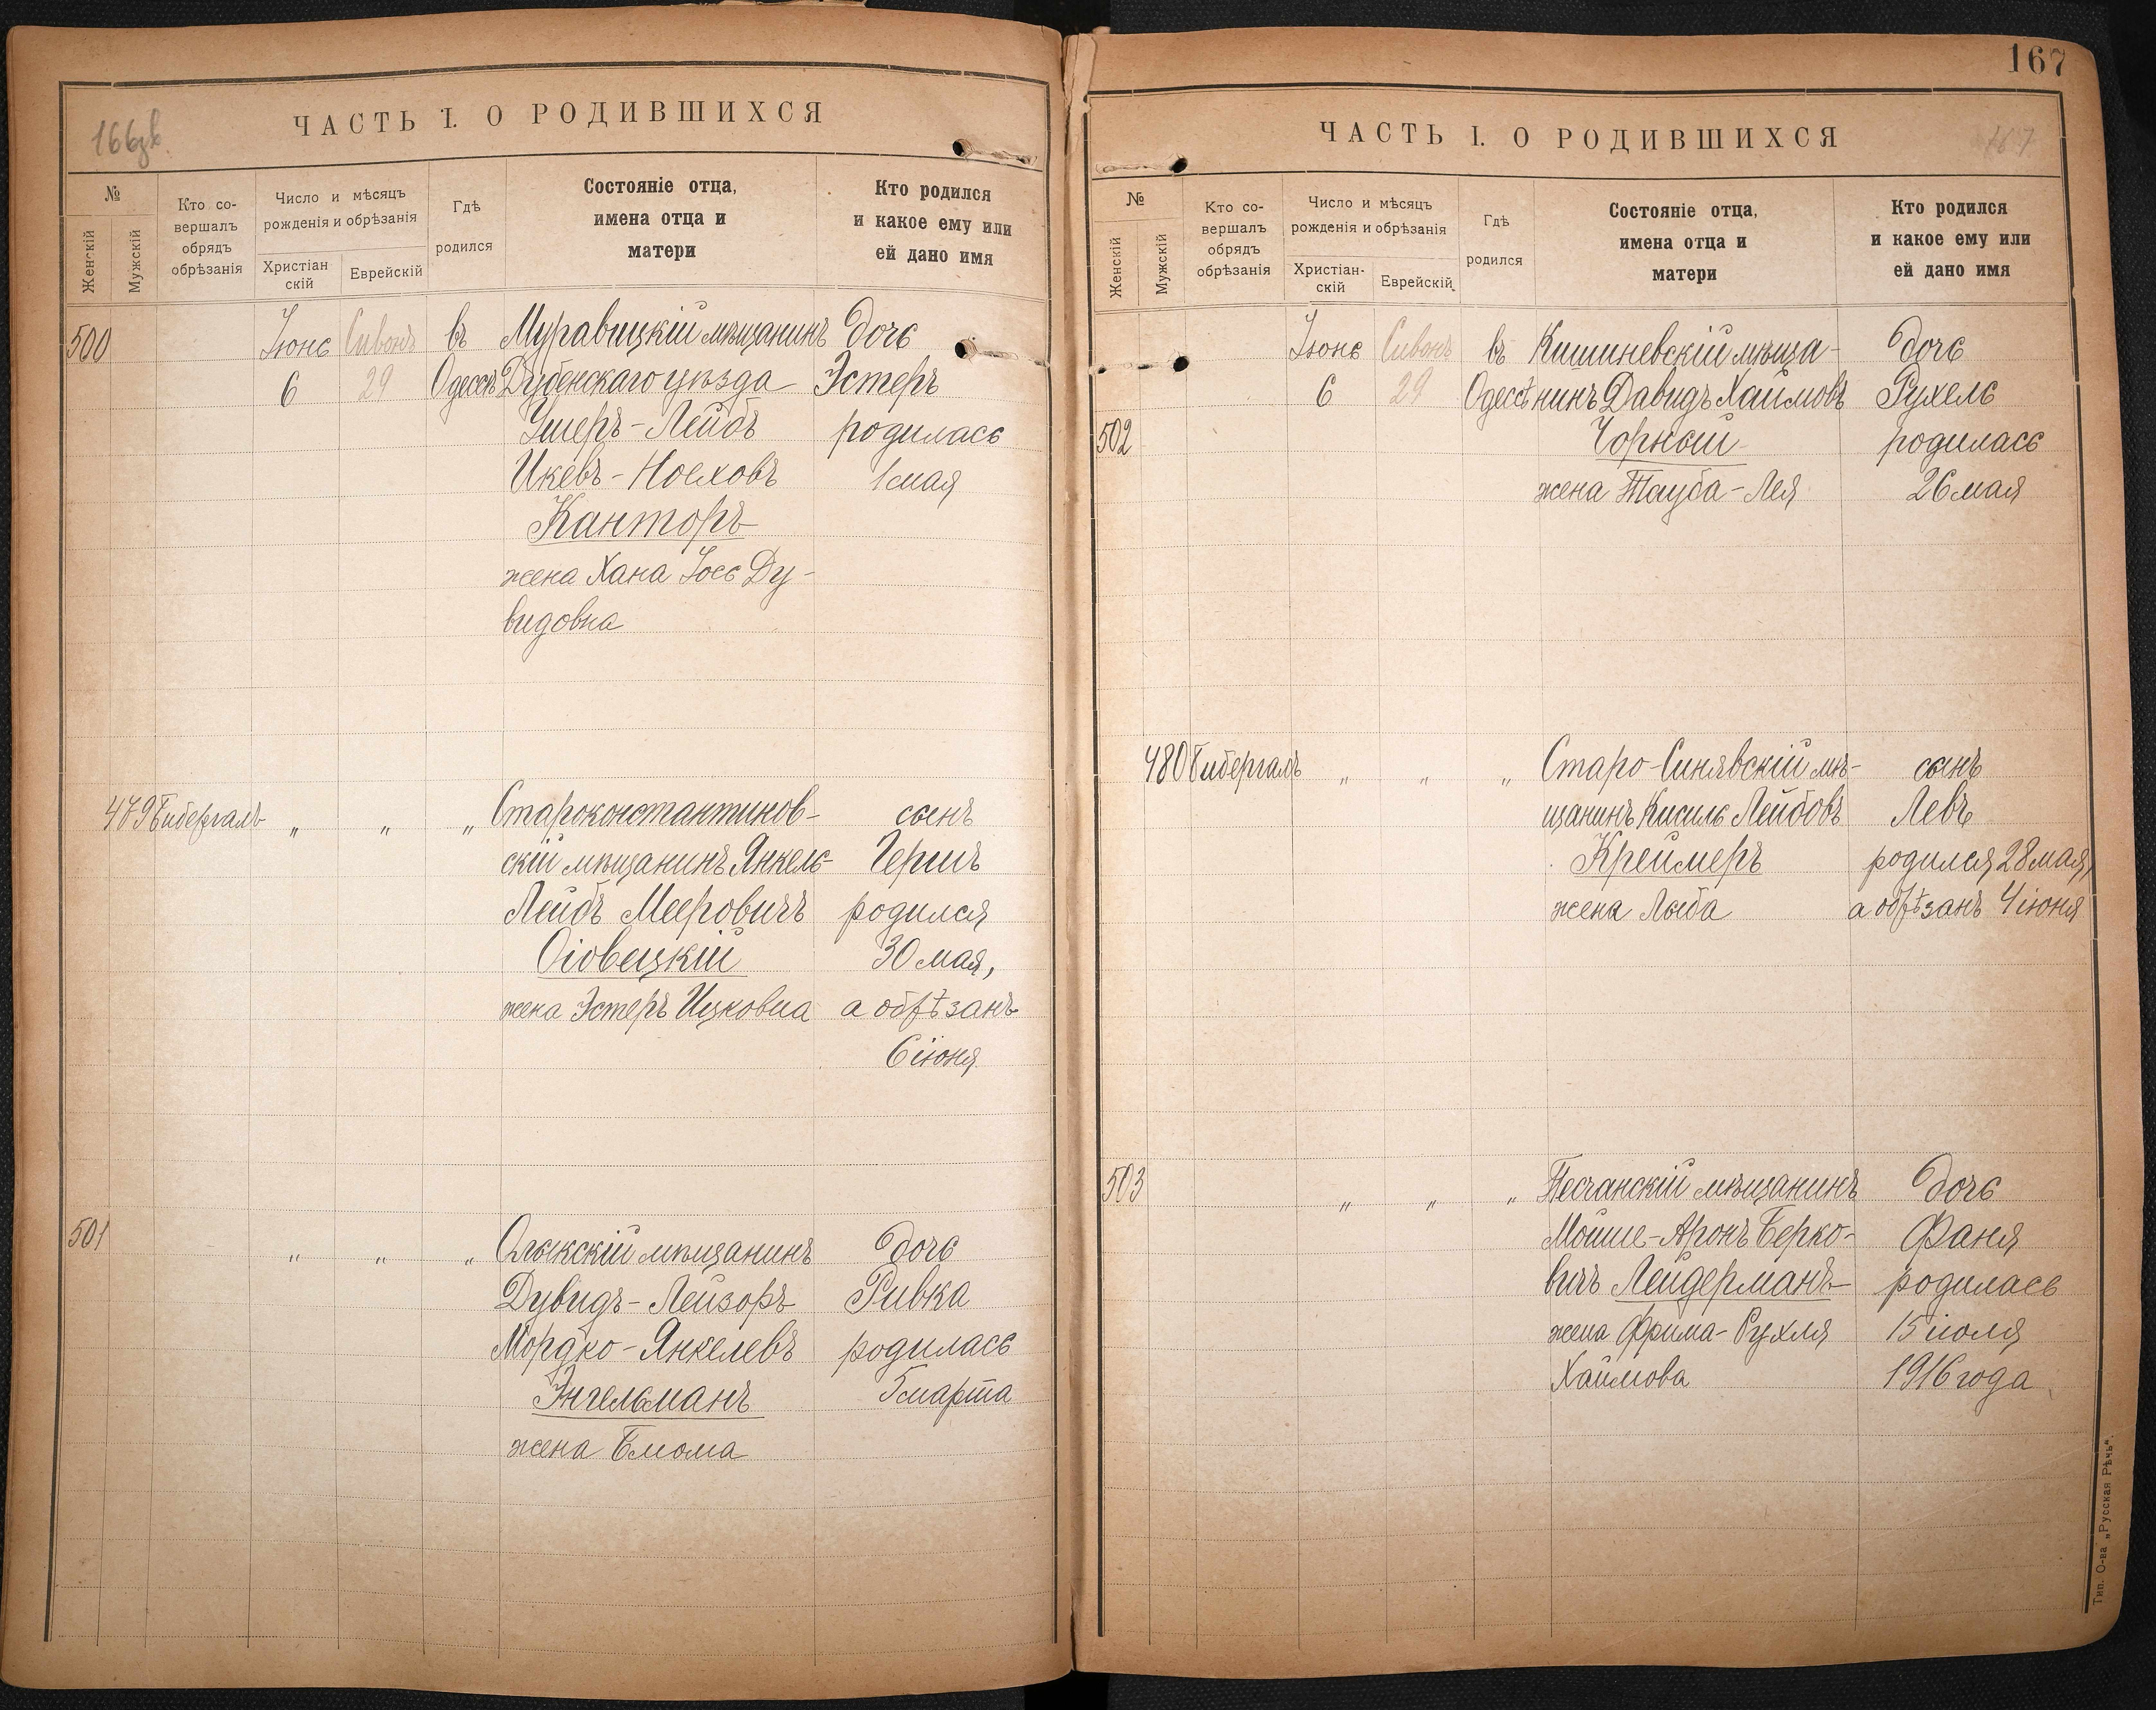 166зв.
ЧАСТЬ I. О РОДИВШИХСЯ
№
Женскій
Мужскій
Кто со-
вершалъ
обрядъ
обрѣзанія
Число и мѣсяцъ
рожденія и обрѣзанія
Христіан-
скій
Еврейскій
Гдѣ
родился
Состояніе отца,
имена отца и
матери
Кто родился
и какое ему или
ей дано имя
500 Іюнь Сивонъ въ Муравицкій мѣщанинъ дочь
6 29 Одессѣ Дубенскаго уѣзда Эстеръ
Ушеръ-Лейбъ родилась
Икевъ-Ноеховъ 1 мая
Канторъ
жена Хана Іось Ду-
видовна
479 Гибергалъ " " " Староконстантинов- сынъ
скій мѣщанинъ Янкель- Гершъ
Лейбъ Мееровичъ родился
Оіовецкій 30 мая,
жена Эстеръ Ицковна а обрѣзанъ
6 іюня
501 " " " Олыкскій мѣщанинъ дочь
Дувидъ-Лейзоръ Ривка
Мордко-Янкелевъ родилась
Энгельманъ 5 марта
жена Блюма
167
ЧАСТЬ I. О РОДИВШИХСЯ
167
№
Женскій
Мужскій
Кто со-
вершалъ
обрядъ
обрѣзанія
Число и мѣсяцъ
рожденія и обрѣзанія
Христіан-
скій
Еврейскій
Гдѣ
родился
Состояніе отца,
имена отца и
матери
Кто родился
и какое ему или
ей дано имя
Іюнь Сивонъ въ Кишиневскій мѣща- дочь
6 29 Одессѣ нинъ Давидъ Хаимовъ Рухель
502 Чорный родилась
жена Тауба-Лея 26 мая
480 Гибергалъ " " " Старо-Синявскій мѣ- сынъ
щанинъ Кисиль Лейбовъ Левъ
Креймеръ родился 28 мая,
жена Лыба а обрѣзанъ 4 іюня
503 " " " Песчанскій мѣщанинъ дочь
Мойше-Аронъ Берко- Фаня
вичъ Лейдерманъ родилась
жена Фрима-Рухля 15 іюля
Хаимова 1916 года
Тип. О-ва „Русская Рѣчь".